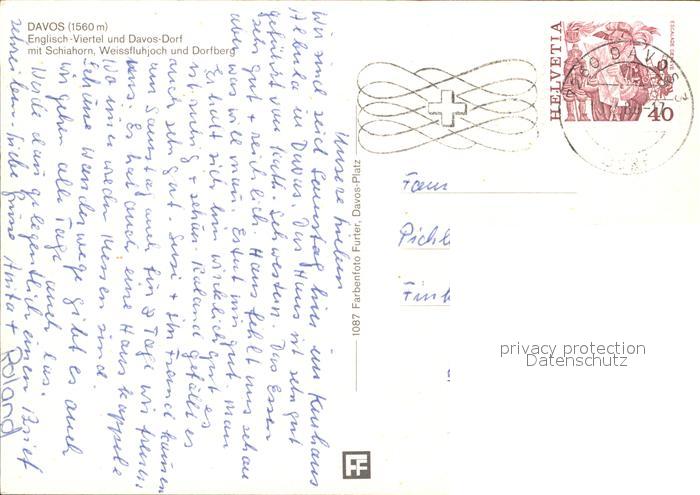 DAVOS (1560 m)
Englisch-Viertel und Davos-Dorf
mit Schiahorn, Weissfluhjoch und Dorfberg
Unsere Lieben
Wir sind seit Samstag hier im Kurhaus
Albula in Davos. Das Haus ist sehr gut
geführt von Kath. Schwestern. Das Essen
sehr gut + reichlich. Haus fehlt uns schon
aber was will man. Es tut mir gut. Man
erholt sich hier wirklich gut es
ist ruhig + schön. Roland gefällt es
auch sehr gut. Susi + ihr Freund kamen
am Samstag auch für 2 Tage wir freuen
uns. Es hat auch eine Hauskappele
wo wir in den Messen sind.
Schöne Wanderwege gibt es auch
wir gehen alle Tage auch los.
Werde dann gelegentlich einen Brief
schreiben. liebe Grüsse Anita +
Roland
1087 Farbenfoto Furter, Davos-Platz
FF
HELVETIA
40
ESCALADE GENÈVE
7260 DAVOS
Fam
Pichl
Fink
privacy protection
Datenschutz